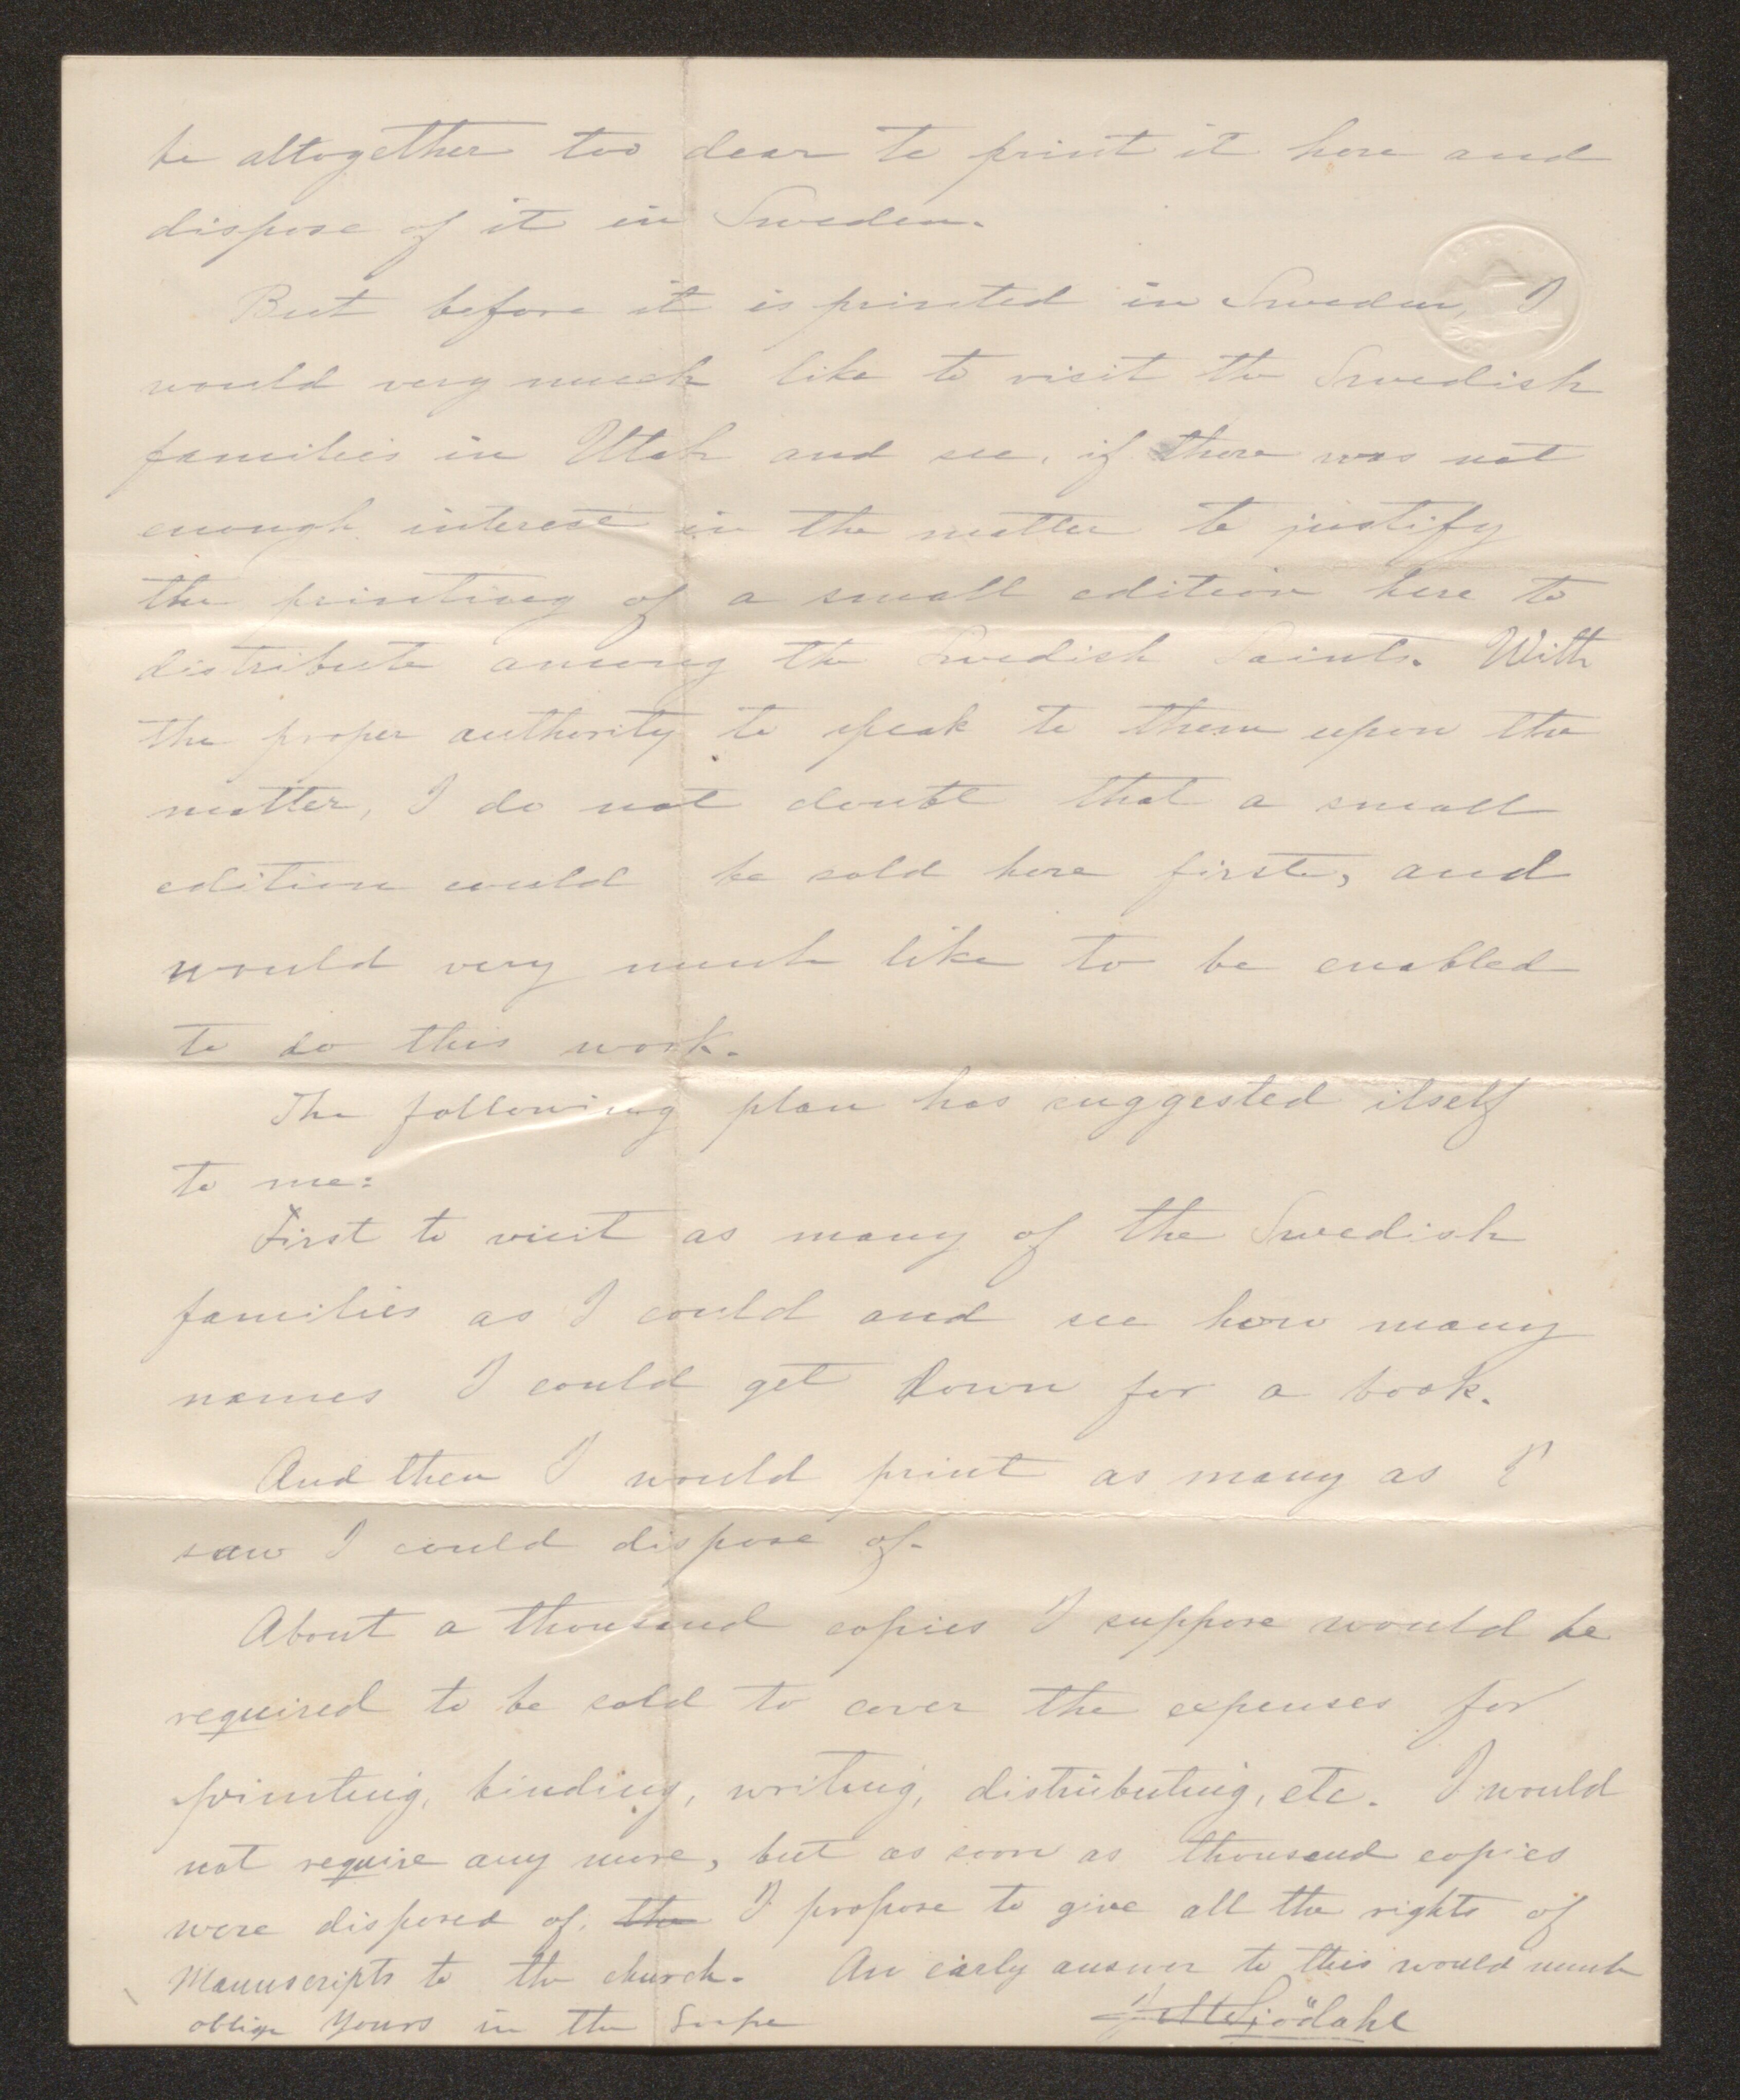 be altogether too dear to print it here and
dispose of it in Sweden.
But before it is printed in Sweden, I
would very much like to visit the Swedish
families in Utah and see, if there was not
enough interest in the matter to justify
the printing of a small edition here to
distribute among the Swedish Saints. With
the proper authority to speak to them upon the
matter, I do not doubt that a small
edition could be sold here first, and
would very much like to be enabled
to do this work.
The following plan has suggested itself
to me:
First to visit as many of the Swedish
families as I could and see how many
names I could get down for a book.
And then I would print as many as I
saw I could dispose of.
About a thousand copies I suppose would be
required to be sold to cover the expenses for
printing, binding, writing, distributing, etc. I would
not require any more, but as soon as thousand copies
were disposed of, the I propose to give all the rights of
Manuscripts to the church. An early answer to this would much
oblige Yours in the Gospe
J M Sjödahl